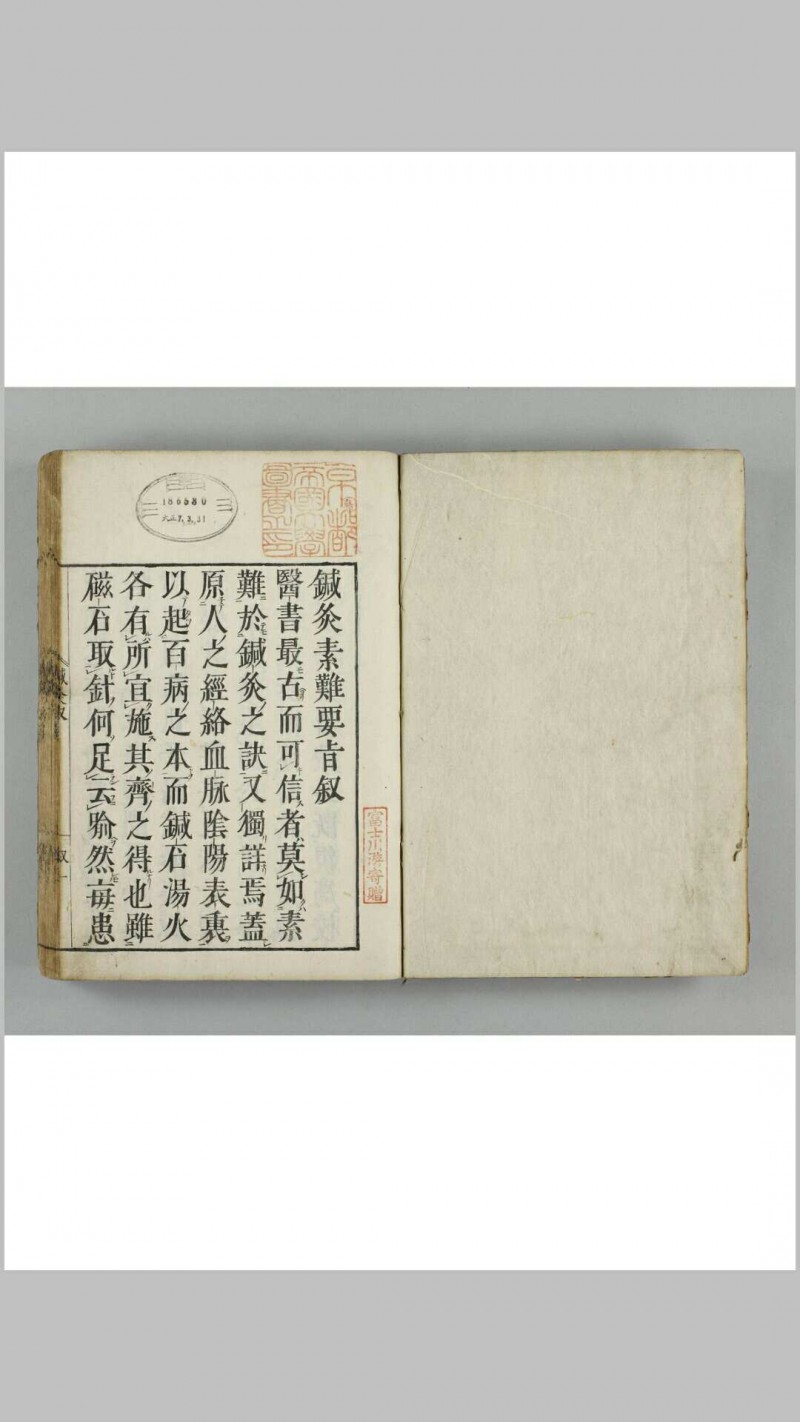 鍼灸素難要旨叙
醫書最古而可信者莫如素
難於鍼灸之訣又獨詳焉蓋
原人之經絡血脉陰陽表裏
以起百病之本而鍼石湯火
各有所宜施其齊之得也雖
磁石取針何足云喩然毎患
叙一
京都
帝國大學
圖書之印
186580
大正7.3.31
富士川游寄贈